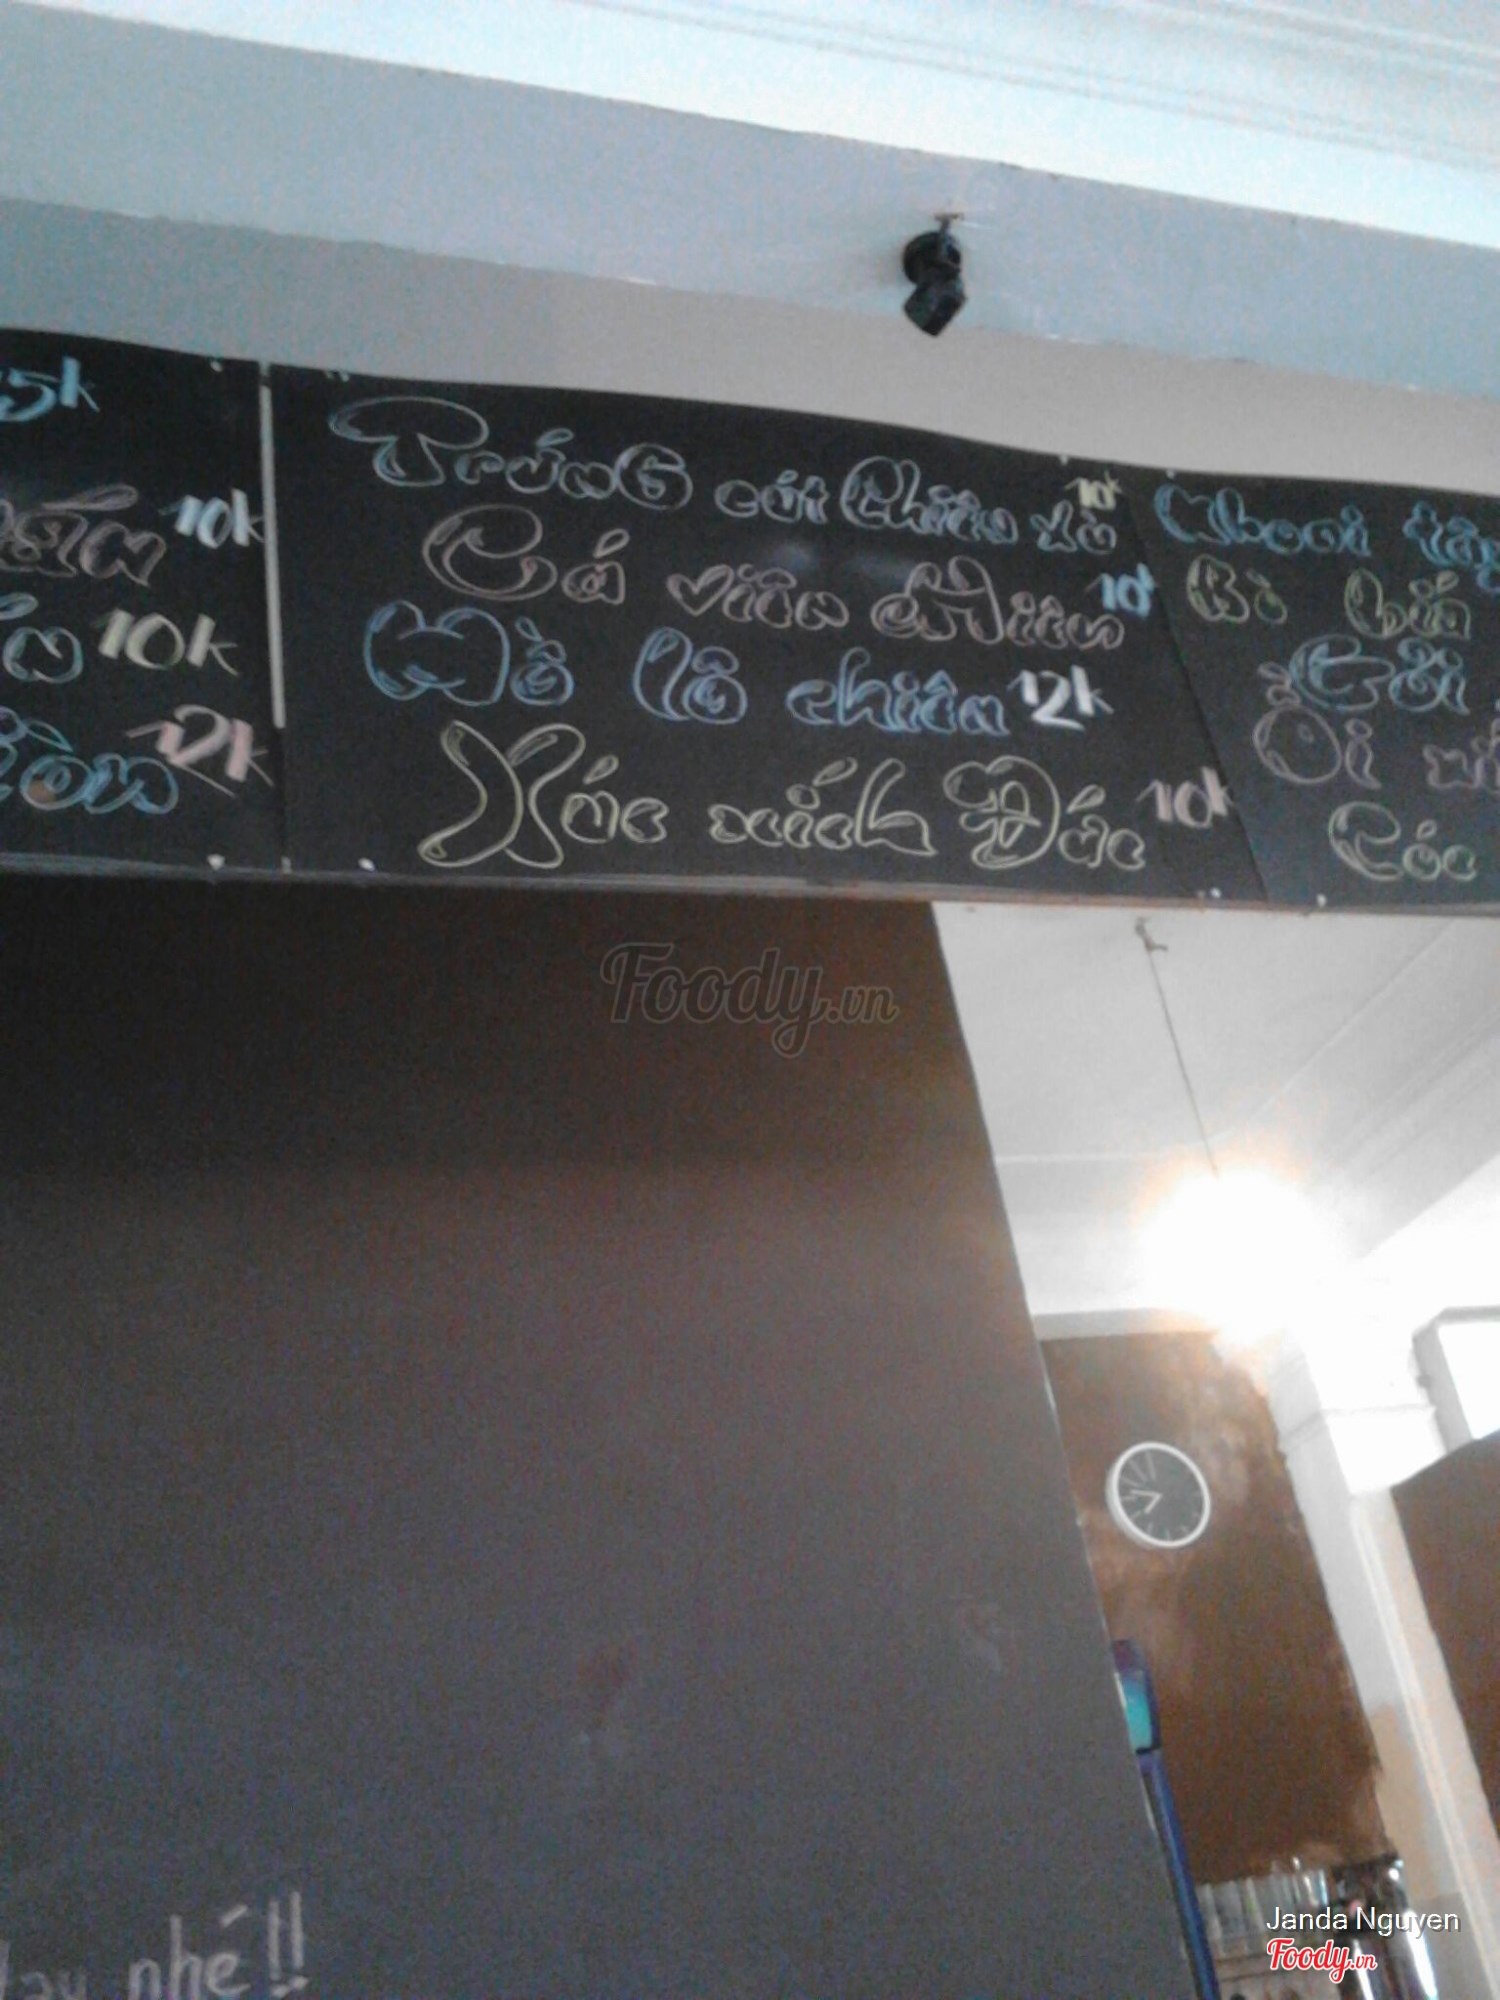 5k
10k
10k
12k
Trứng cút chiên xù 10k
Cá viên chiên 10k
Hồ lô chiên 12k
Xúc xích Đức 10k
Khoai tây
Bò bía
Gỏi
Ổi
Cóc
Foody.vn
nhé!!
Janda Nguyen
Foody.vn